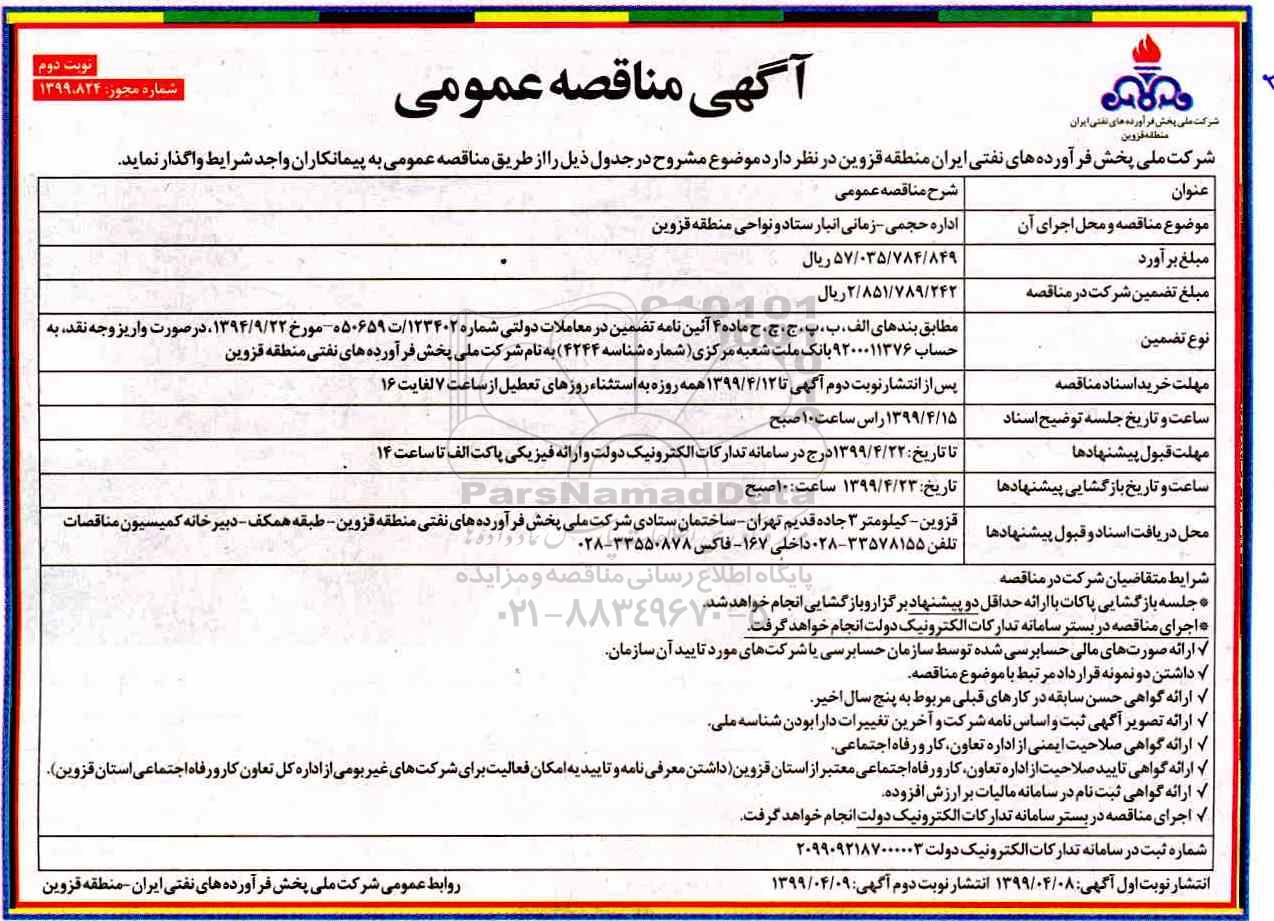 نوبت دوم
شماره مجوز: ۱۳۹۹،۸۲۴
آگهی مناقصه عمومی
شرکت ملی پخش فرآورده‌های نفتی ایران
منطقه قزوین
شرکت ملی پخش فرآورده‌های نفتی ایران منطقه قزوین در نظر دارد موضوع مشروح در جدول ذیل را از طریق مناقصه عمومی به پیمانکاران واجد شرایط واگذار نماید.
عنوان شرح مناقصه عمومی
موضوع مناقصه و محل اجرای آن اداره حجمی-زمانی انبار ستاد و نواحی منطقه قزوین
مبلغ برآورد ۵۷/۰۳۵/۷۸۴/۸۴۹ ریال
مبلغ تضمین شرکت در مناقصه ۲/۸۵۱/۷۸۹/۲۴۲ ریال
نوع تضمین مطابق بندهای الف، ب، پ، ج، چ، ح ماده ۴ آئین نامه تضمین در معاملات دولتی شماره ۱۲۳۴۰۲/ت ۵۰۶۵۹ ه-مورخ ۱۳۹۴/۹/۲۲، در صورت واریز وجه نقد، به
حساب ۹۲۰۰۰۱۱۳۷۶ بانک ملت شعبه مرکزی (شماره شناسه ۴۲۴۴) به نام شرکت ملی پخش فرآورده‌های نفتی منطقه قزوین
مهلت خرید اسناد مناقصه پس از انتشار نوبت دوم آگهی تا ۱۳۹۹/۴/۱۲ همه روزه به استثناء روزهای تعطیل از ساعت ۷ لغایت ۱۶
ساعت و تاریخ جلسه توضیح اسناد ۱۳۹۹/۴/۱۵ راس ساعت ۱۰ صبح
مهلت قبول پیشنهادها تا تاریخ: ۱۳۹۹/۴/۲۲ درج در سامانه تدارکات الکترونیک دولت و ارائه فیزیکی پاکت الف تا ساعت ۱۴
ساعت و تاریخ بازگشایی پیشنهادها تاریخ: ۱۳۹۹/۴/۲۳ ساعت: ۱۰ صبح
محل دریافت اسناد و قبول پیشنهادها قزوین-کیلومتر ۳ جاده قدیم تهران-ساختمان ستادی شرکت ملی پخش فرآورده‌های نفتی منطقه قزوین-طبقه همکف-دبیرخانه کمیسیون مناقصات
تلفن ۳۳۵۷۸۱۵۵-۰۲۸ داخلی ۱۶۷- فاکس ۳۳۵۵۰۸۷۸-۰۲۸
ParsNamadData
پایگاه اطلاع رسانی مناقصه و مزایده
۰۲۱-۸۸۳۴۹۶۷۰-۵
شرایط متقاضیان شرکت در مناقصه
* جلسه بازگشایی پاکات با ارائه حداقل دو پیشنهاد برگزار و بازگشایی انجام خواهد شد.
* اجرای مناقصه در بستر سامانه تدارکات الکترونیک دولت انجام خواهد گرفت.
√ ارائه صورت‌های مالی حسابرسی شده توسط سازمان حسابرسی یا شرکت‌های مورد تایید آن سازمان.
√ داشتن دو نمونه قرارداد مرتبط با موضوع مناقصه.
√ ارائه گواهی حسن سابقه در کارهای قبلی مربوط به پنج سال اخیر.
√ ارائه تصویر آگهی ثبت و اساس نامه شرکت و آخرین تغییرات دارا بودن شناسه ملی.
√ ارائه گواهی صلاحیت ایمنی از اداره تعاون، کار و رفاه اجتماعی.
√ ارائه گواهی تایید صلاحیت از اداره تعاون، کار و رفاه اجتماعی معتبر از استان قزوین (داشتن معرفی نامه و تاییدیه امکان فعالیت برای شرکت‌های غیر بومی از اداره کل تعاون کار و رفاه اجتماعی استان قزوین).
√ ارائه گواهی ثبت نام در سامانه مالیات بر ارزش افزوده.
√ اجرای مناقصه در بستر سامانه تدارکات الکترونیک دولت انجام خواهد گرفت.
شماره ثبت در سامانه تدارکات الکترونیک دولت ۲۰۹۹۰۹۲۱۸۷۰۰۰۰۰۳
انتشار نوبت اول آگهی: ۱۳۹۹/۰۴/۰۸ انتشار نوبت دوم آگهی: ۱۳۹۹/۰۴/۰۹
روابط عمومی شرکت ملی پخش فرآورده‌های نفتی ایران-منطقه قزوین